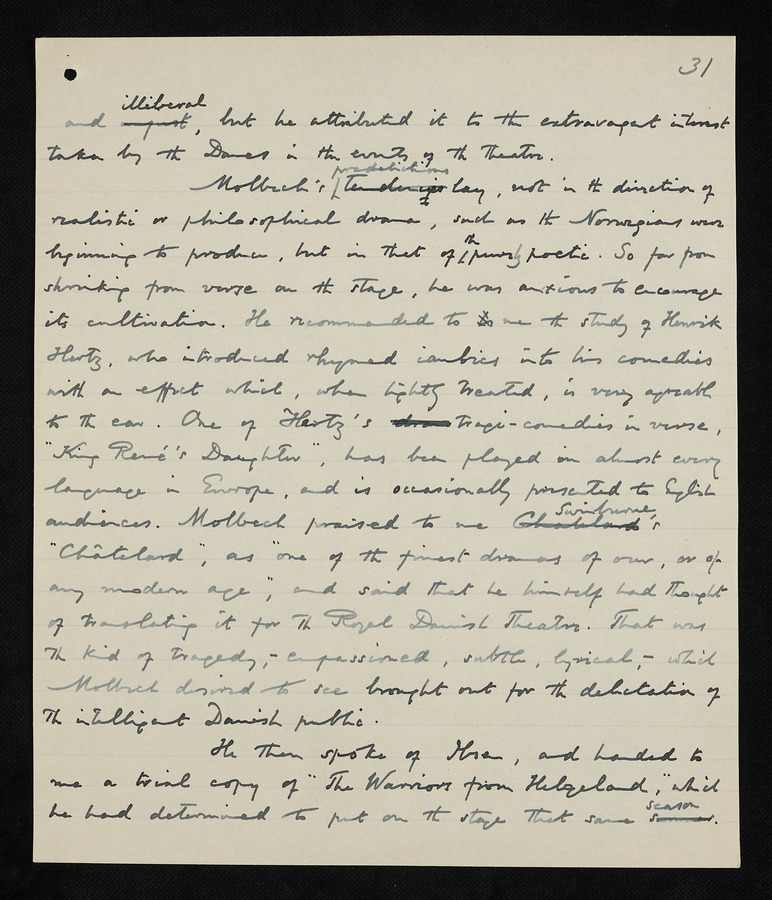 31
illiberal
and unjust, but he attributed it to the extravagant interest
taken by the Danes in the events of the Theatre.
predelictions
Molbech's tendencies lay, not in the direction of
realistic or philosophical drama, such as the Norwegians were
beginning to produce, but in that of the purely poetic. So far from
shrinking from verse on the stage, he was anxious to encourage
its cultivation. He recommended to me the study of Henrik
Hertz, who introduced rhymed iambics into his comedies
with an effect which, when lightly treated, is very agreeable
to the ear. One of Hertz's dram tragi-comedies in verse,
"King René's Daughter", has been played in almost every
language in Europe, and is occasionally presented to English
audiences. Molbech praised to me Swinburne's
Chatelard
"Châtelard", as "one of the finest dramas of our, or of
any modern age", and said that he himself had thought
of translating it for the Royal Danish Theatre. That was
the kind of tragedy,- empassioned, subtle, lyrical,- which
Molbech desired to see brought out for the delectation of
the intelligent Danish public.
He then spoke of Ibsen, and handed to
me a trial copy of "The Warriors from Helgeland", which
season
he had determined to put on the stage that same summer.